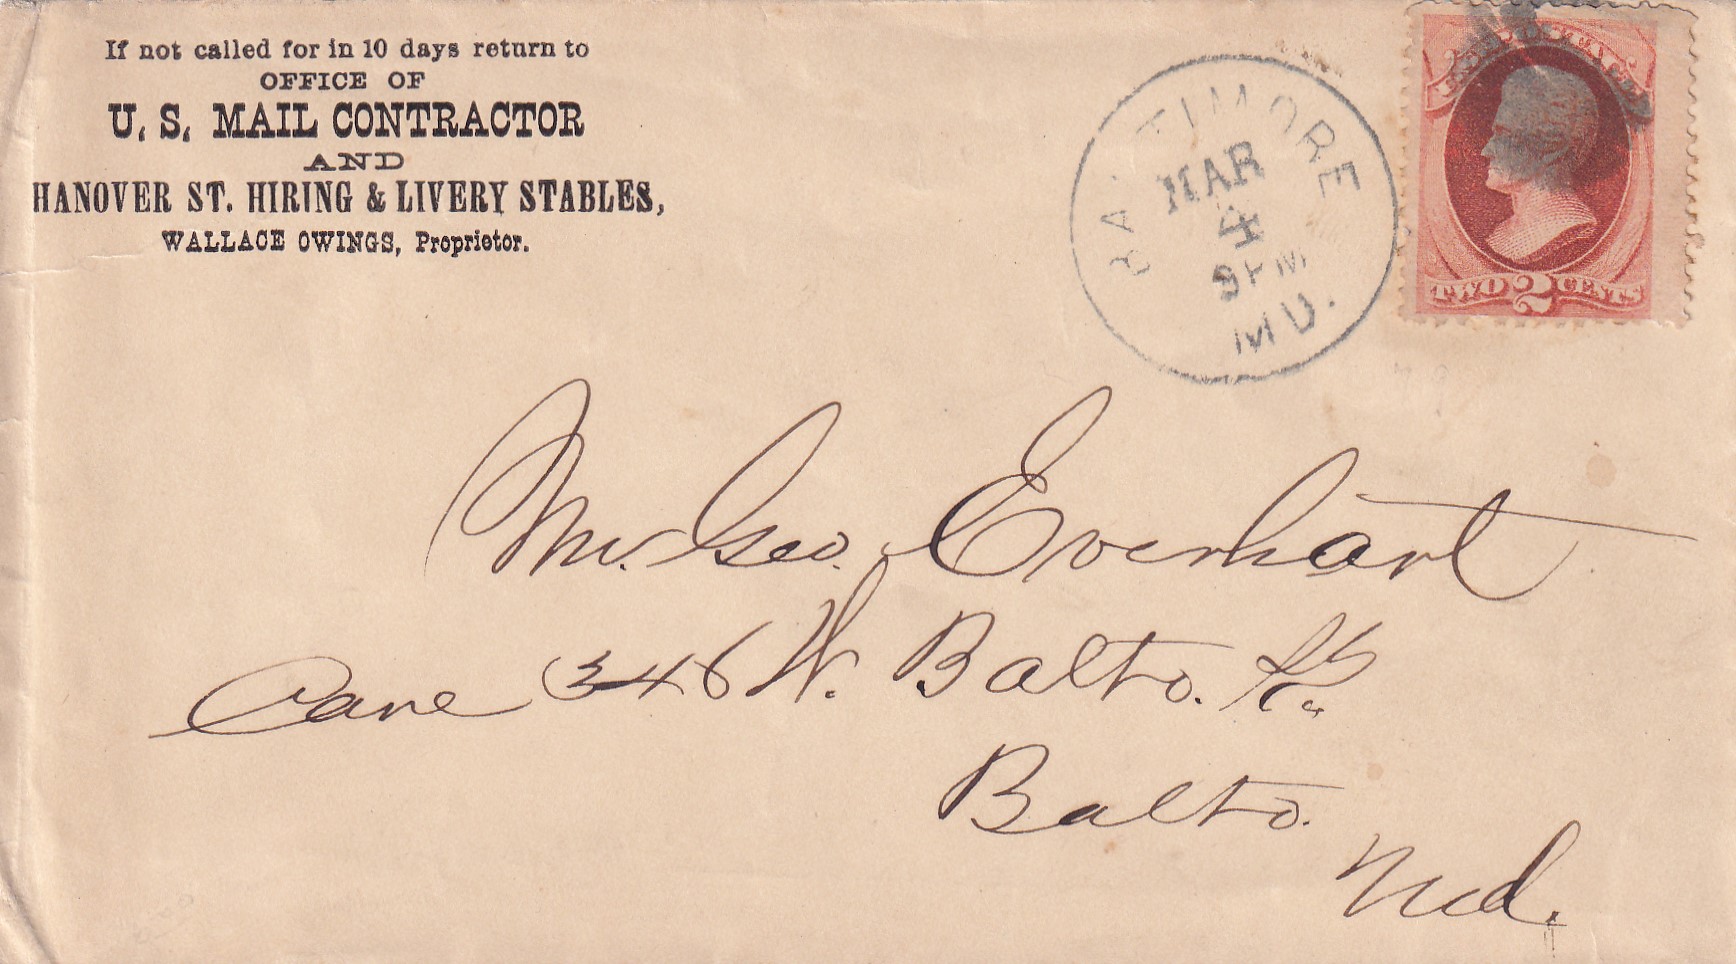 If not called for in 10 days return to
OFFICE OF
U. S. MAIL CONTRACTOR
AND
HANOVER ST. HIRING & LIVERY STABLES,
WALLACE OWINGS, Proprietor.
BALTIMORE
MAR
4
9 PM
MD.
TWO 2 CENTS
Mr. Geo. Everhart
Care 346 W. Balto. St.
Balto.
Md.